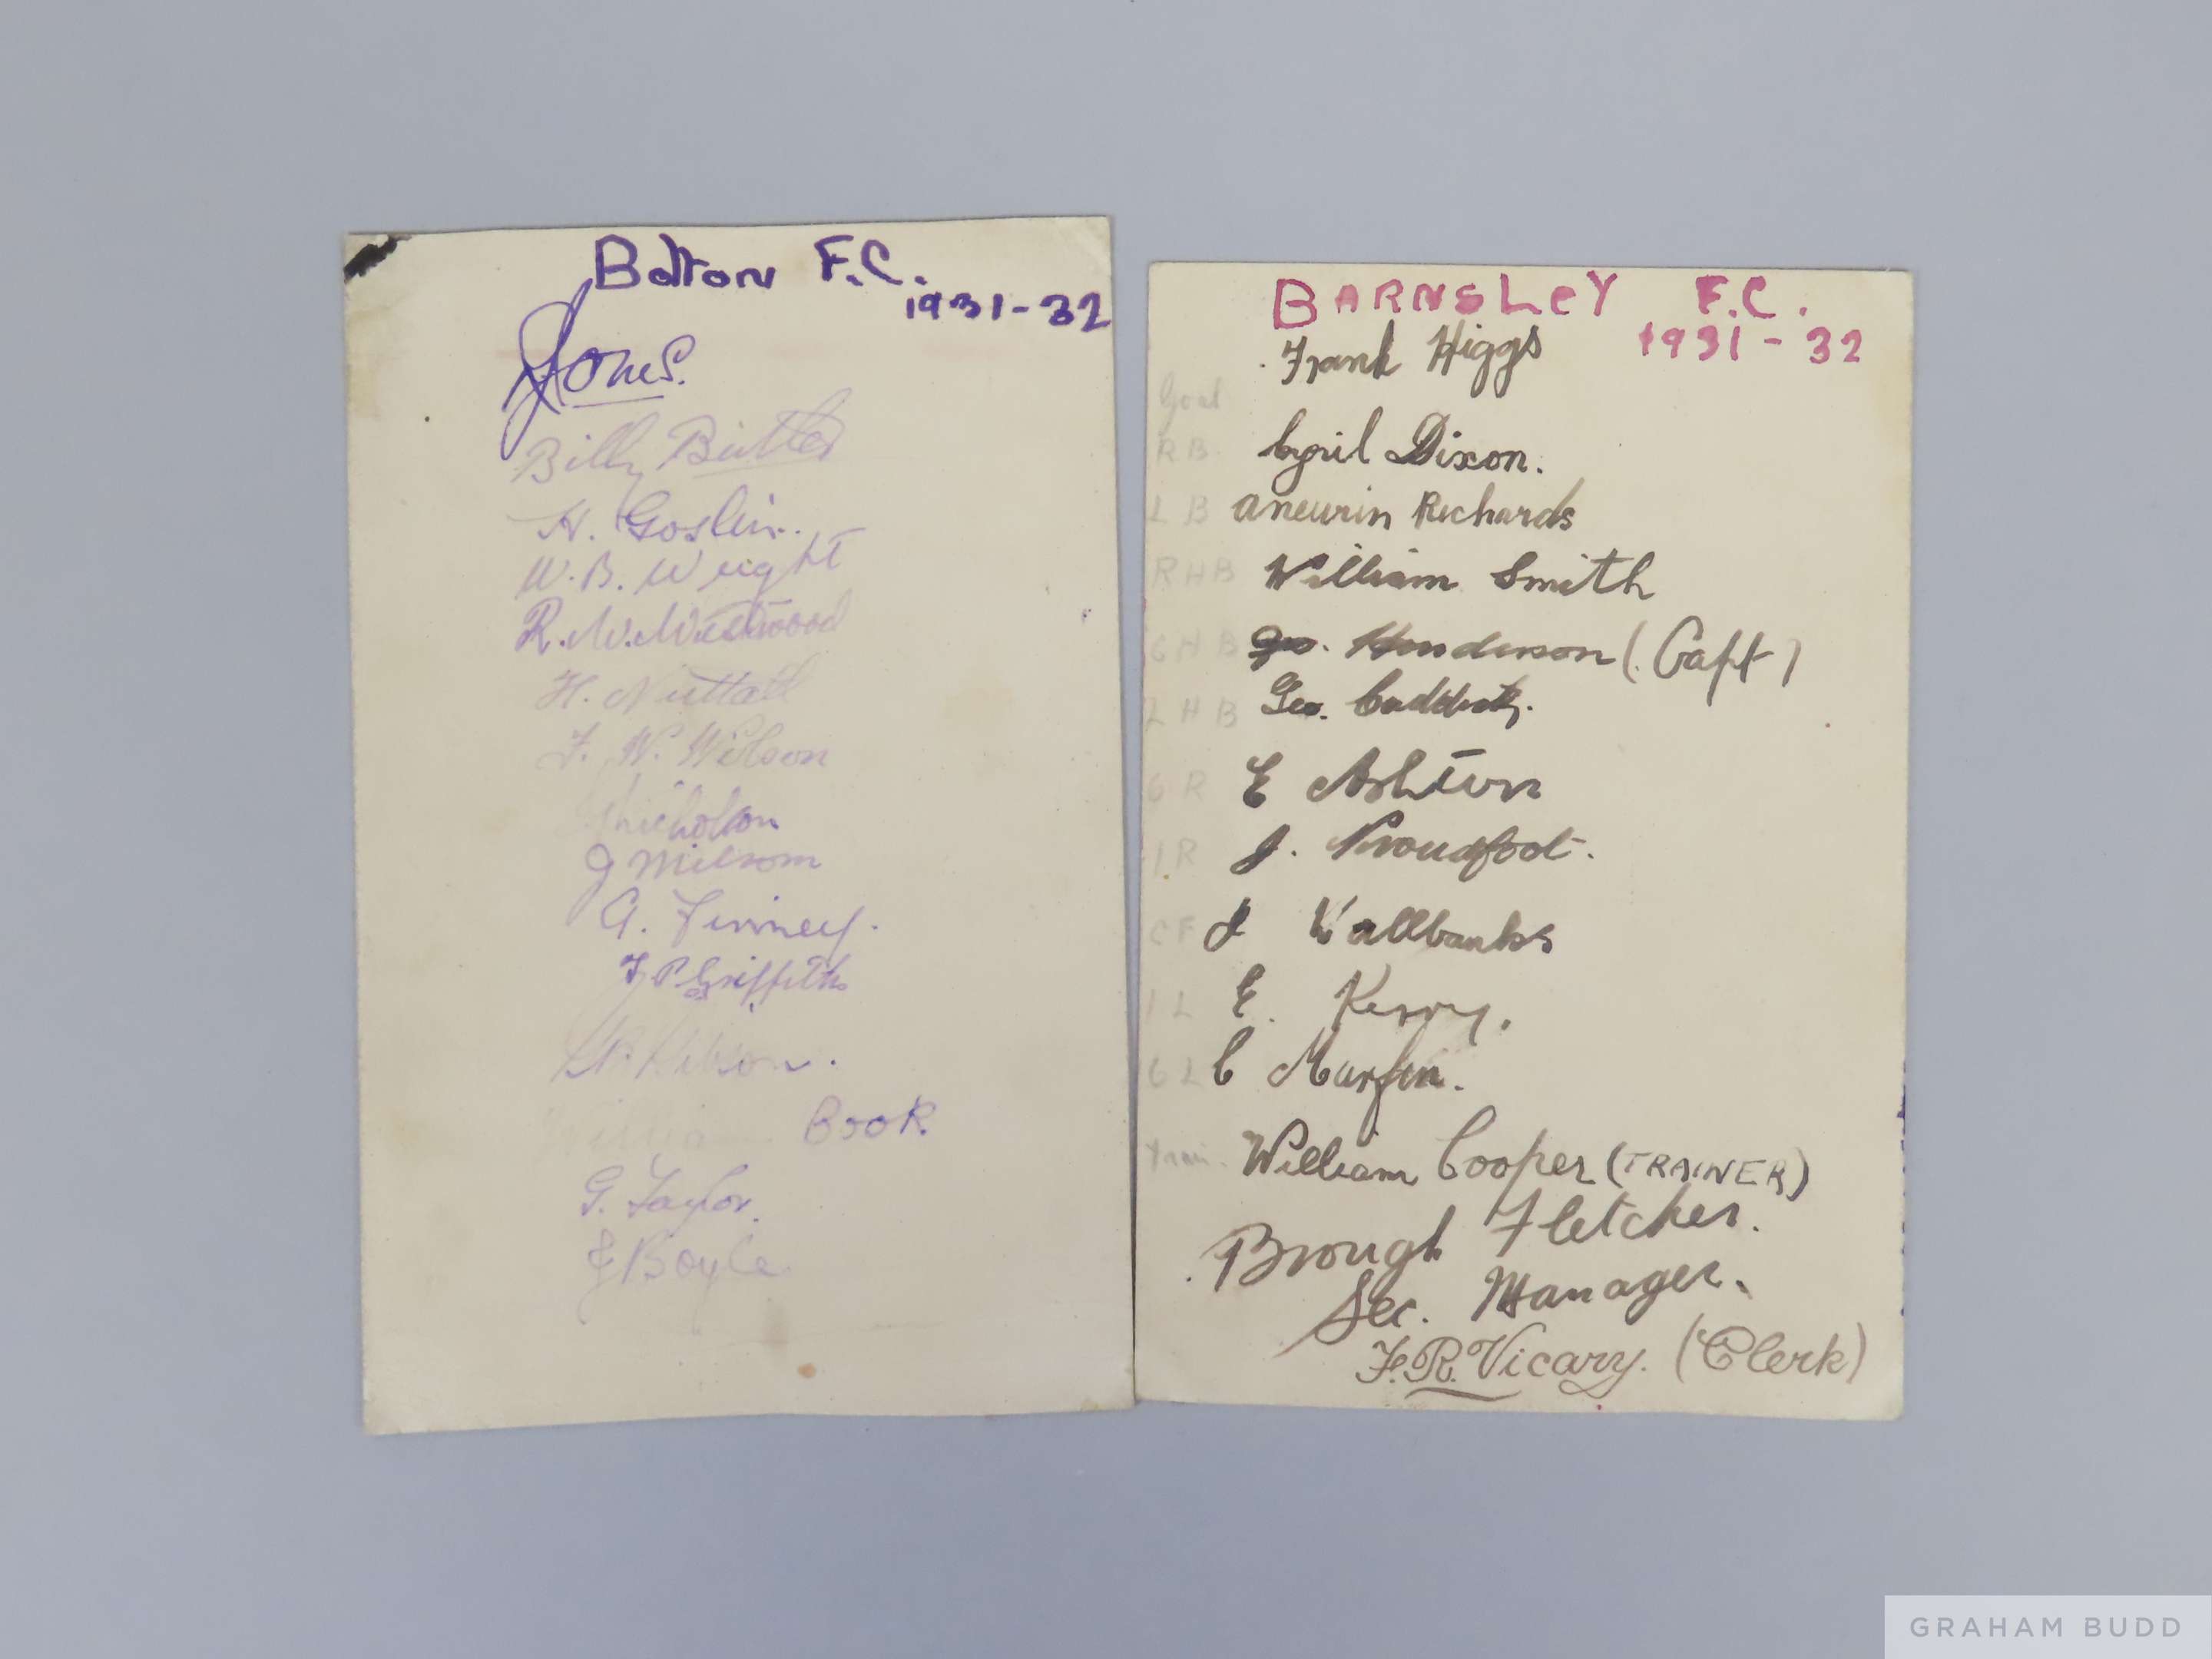 Bolton F.C.
1931-32
Jones.
Billy Butler
H. Goslin.
W.B. Wright
R.W. Westwood
H. Nuttall
F. W. Wilson
Nicholson
J Milsom
A. Finney.
F P Griffiths
Gibson.
William Cook.
G. Taylor.
J Boyle
BARNSLEY F.C.
1931-32
Frank Higgs
Goal
RB Cyril Dixon.
LB Aneurin Richards
RHB William Smith
CHB Geo. Henderson (Capt)
LHB Geo. Caddick.
OR E Ashton
IR J. Proudfoot.
CF J Wallbanks
IL E. Kerry.
OL C Marfin.
Train. William Cooper (TRAINER)
Brough Fletcher.
Sec. Manager.
F.R. Vicary. (Clerk)
GRAHAM BUDD